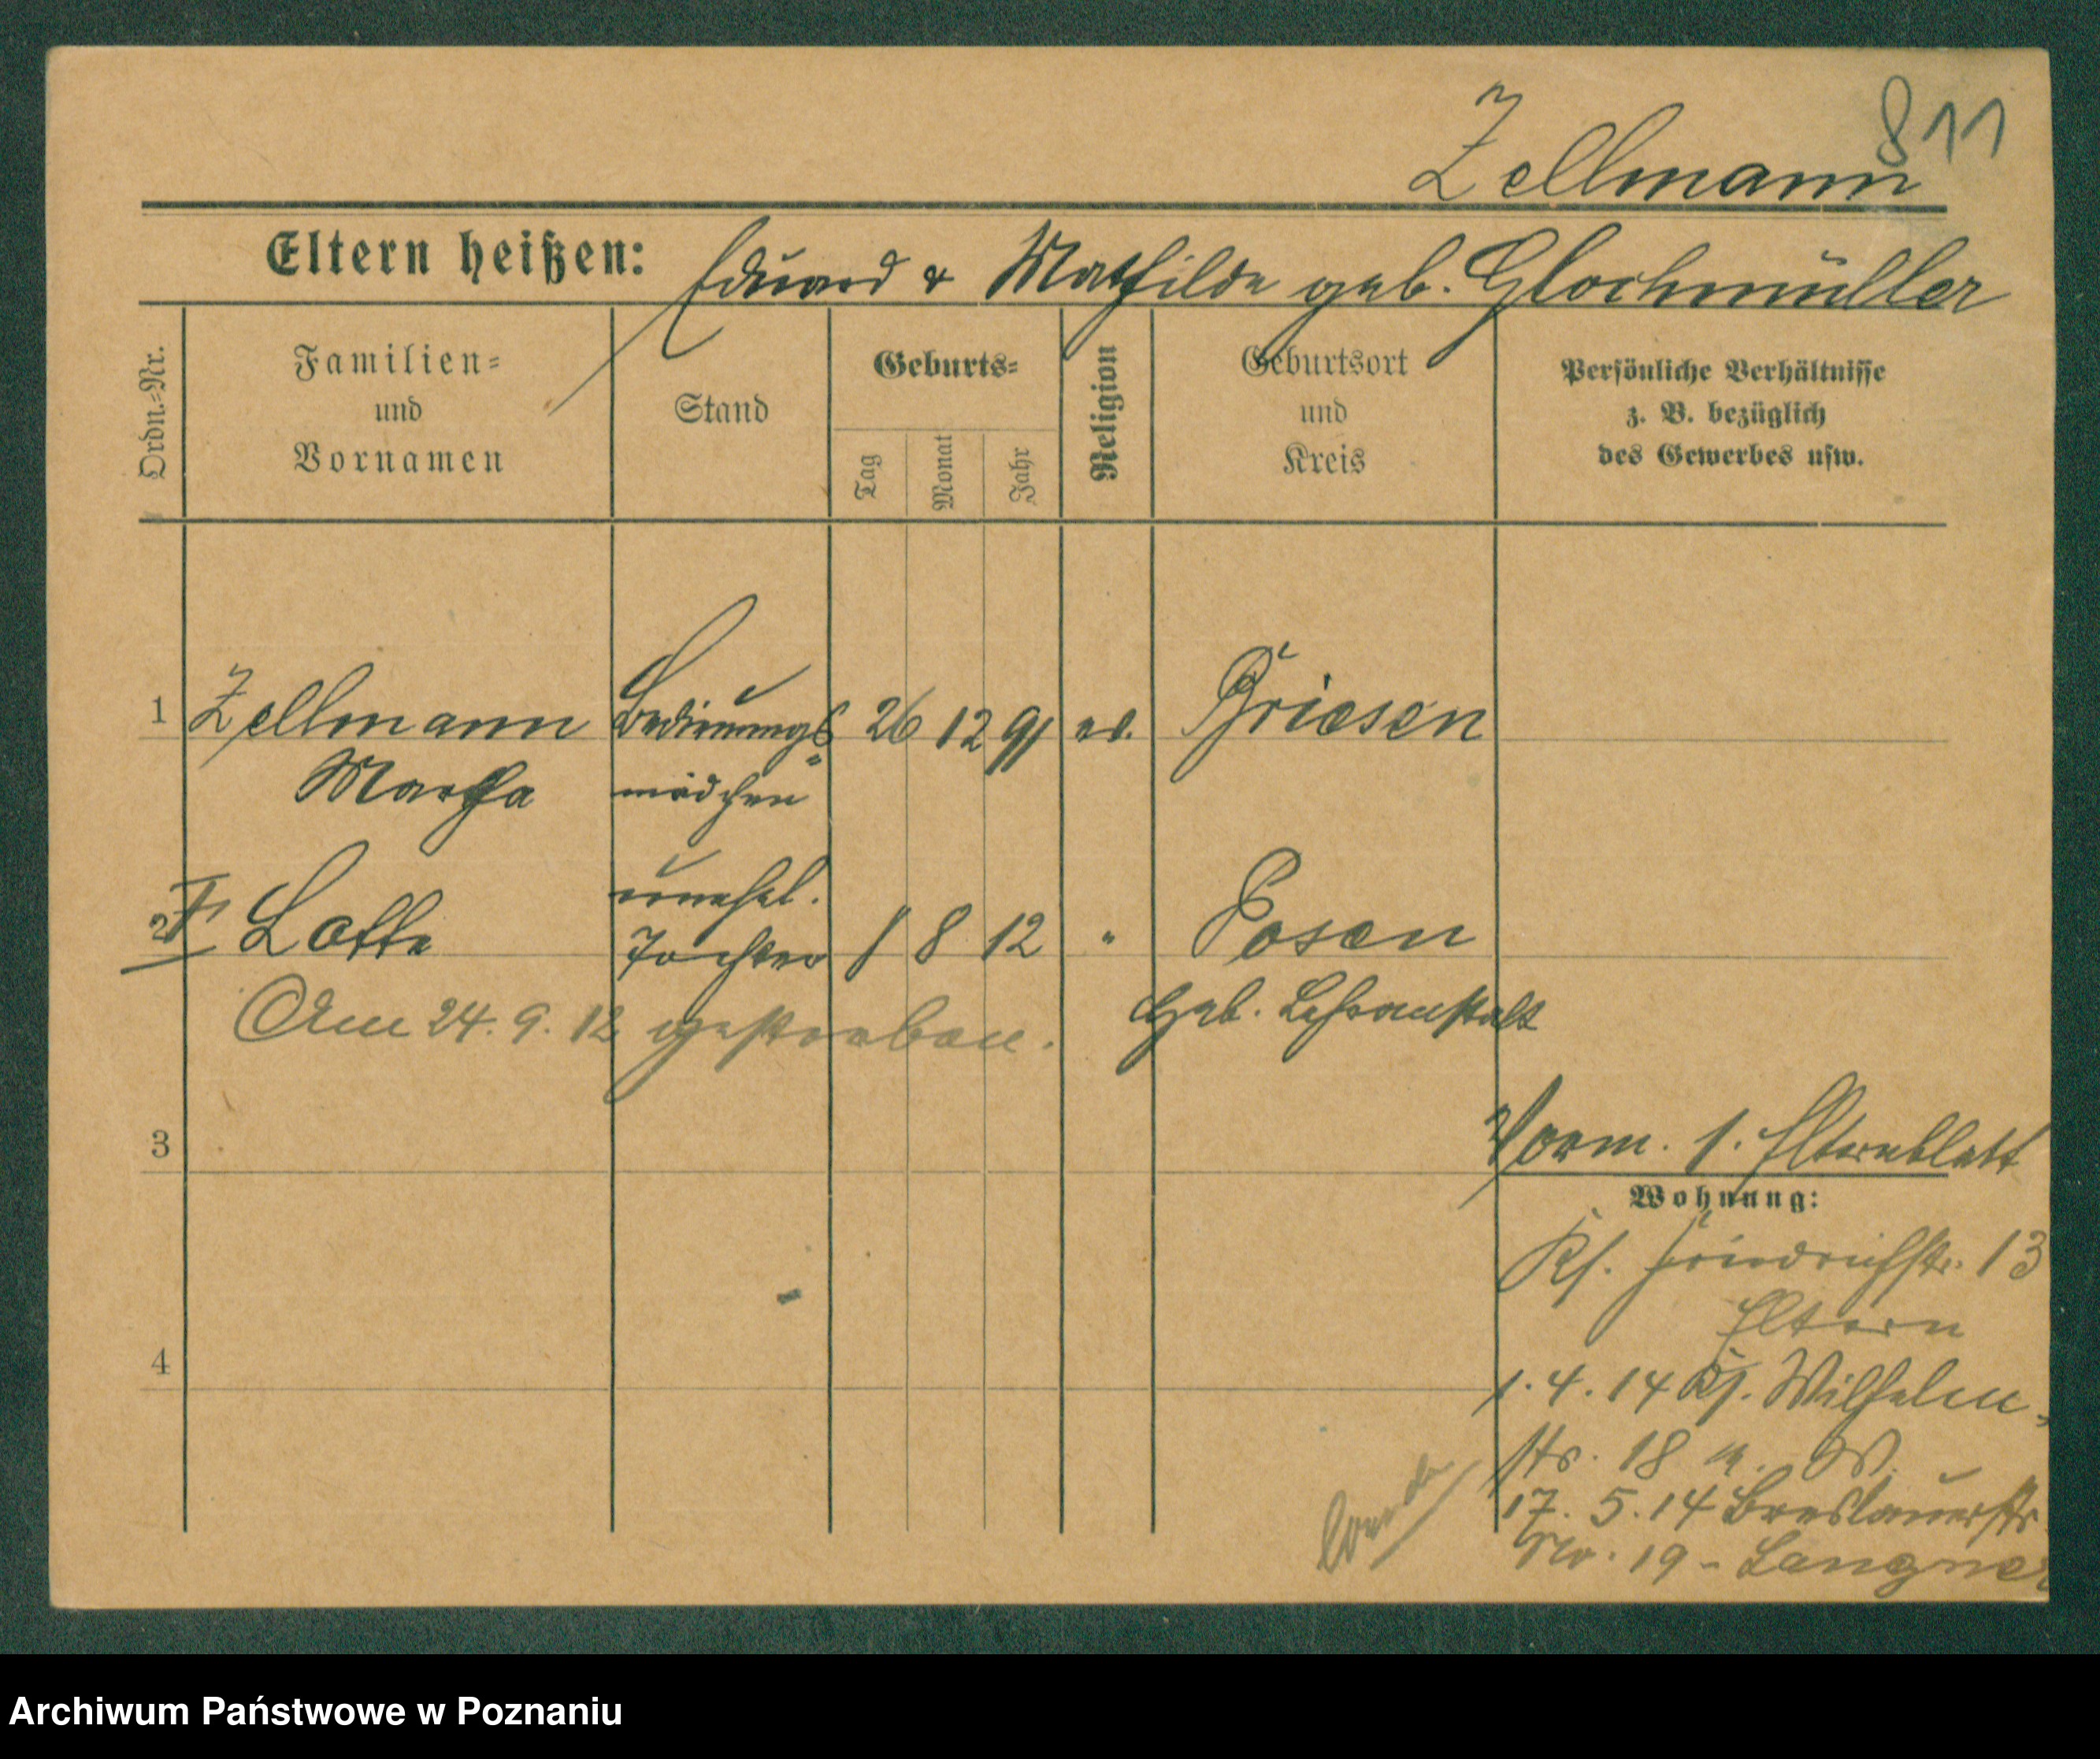 811
Zellmann
Eltern heißen: Eduard & Mathilde geb. Glockmüller
Ordn.=Nr.
Familien=
und
Vornamen
Stand
Geburts=
Tag
Monat
Jahr
Religion
Geburtsort
und
Kreis
Persönliche Verhältnisse
z. B. bezüglich
des Gewerbes usw.
1 Zellmann Bedienungs= 26 12 91 ev. Briesen
Martha mädchen
2 Lotte unehel. Tochter 1 8 12 " Posen
Am 24. 9. 12 gestorben. Heb. Lehranstalt
3
Vorm. 1. Elternblatt
Wohnung:
Ks. Friedrichstr. 13
Eltern
4
1. 4. 14 Ks. Wilhelm-
str. 18
17. 5. 14 Breslauerstr
No. 19 - Langner
Archiwum Państwowe w Poznaniu